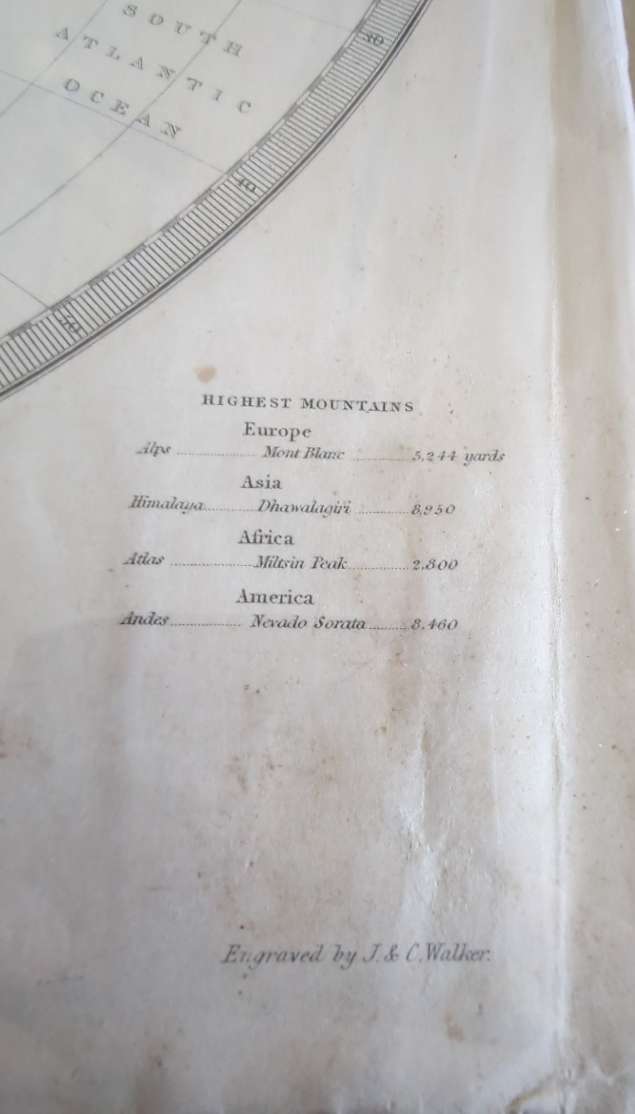 SOUTH
ATLANTIC
OCEAN
40
HIGHEST MOUNTAINS
Europe
Alps ........ Mont Blanc ........ 5,244 yards
Asia
Himalaya ........ Dhawalagiri ........ 8,950
Africa
Atlas ........ Miltsin Peak ........ 2,800
America
Andes ........ Nevado Sorata ........ 8.460
Engraved by J. & C. Walker.